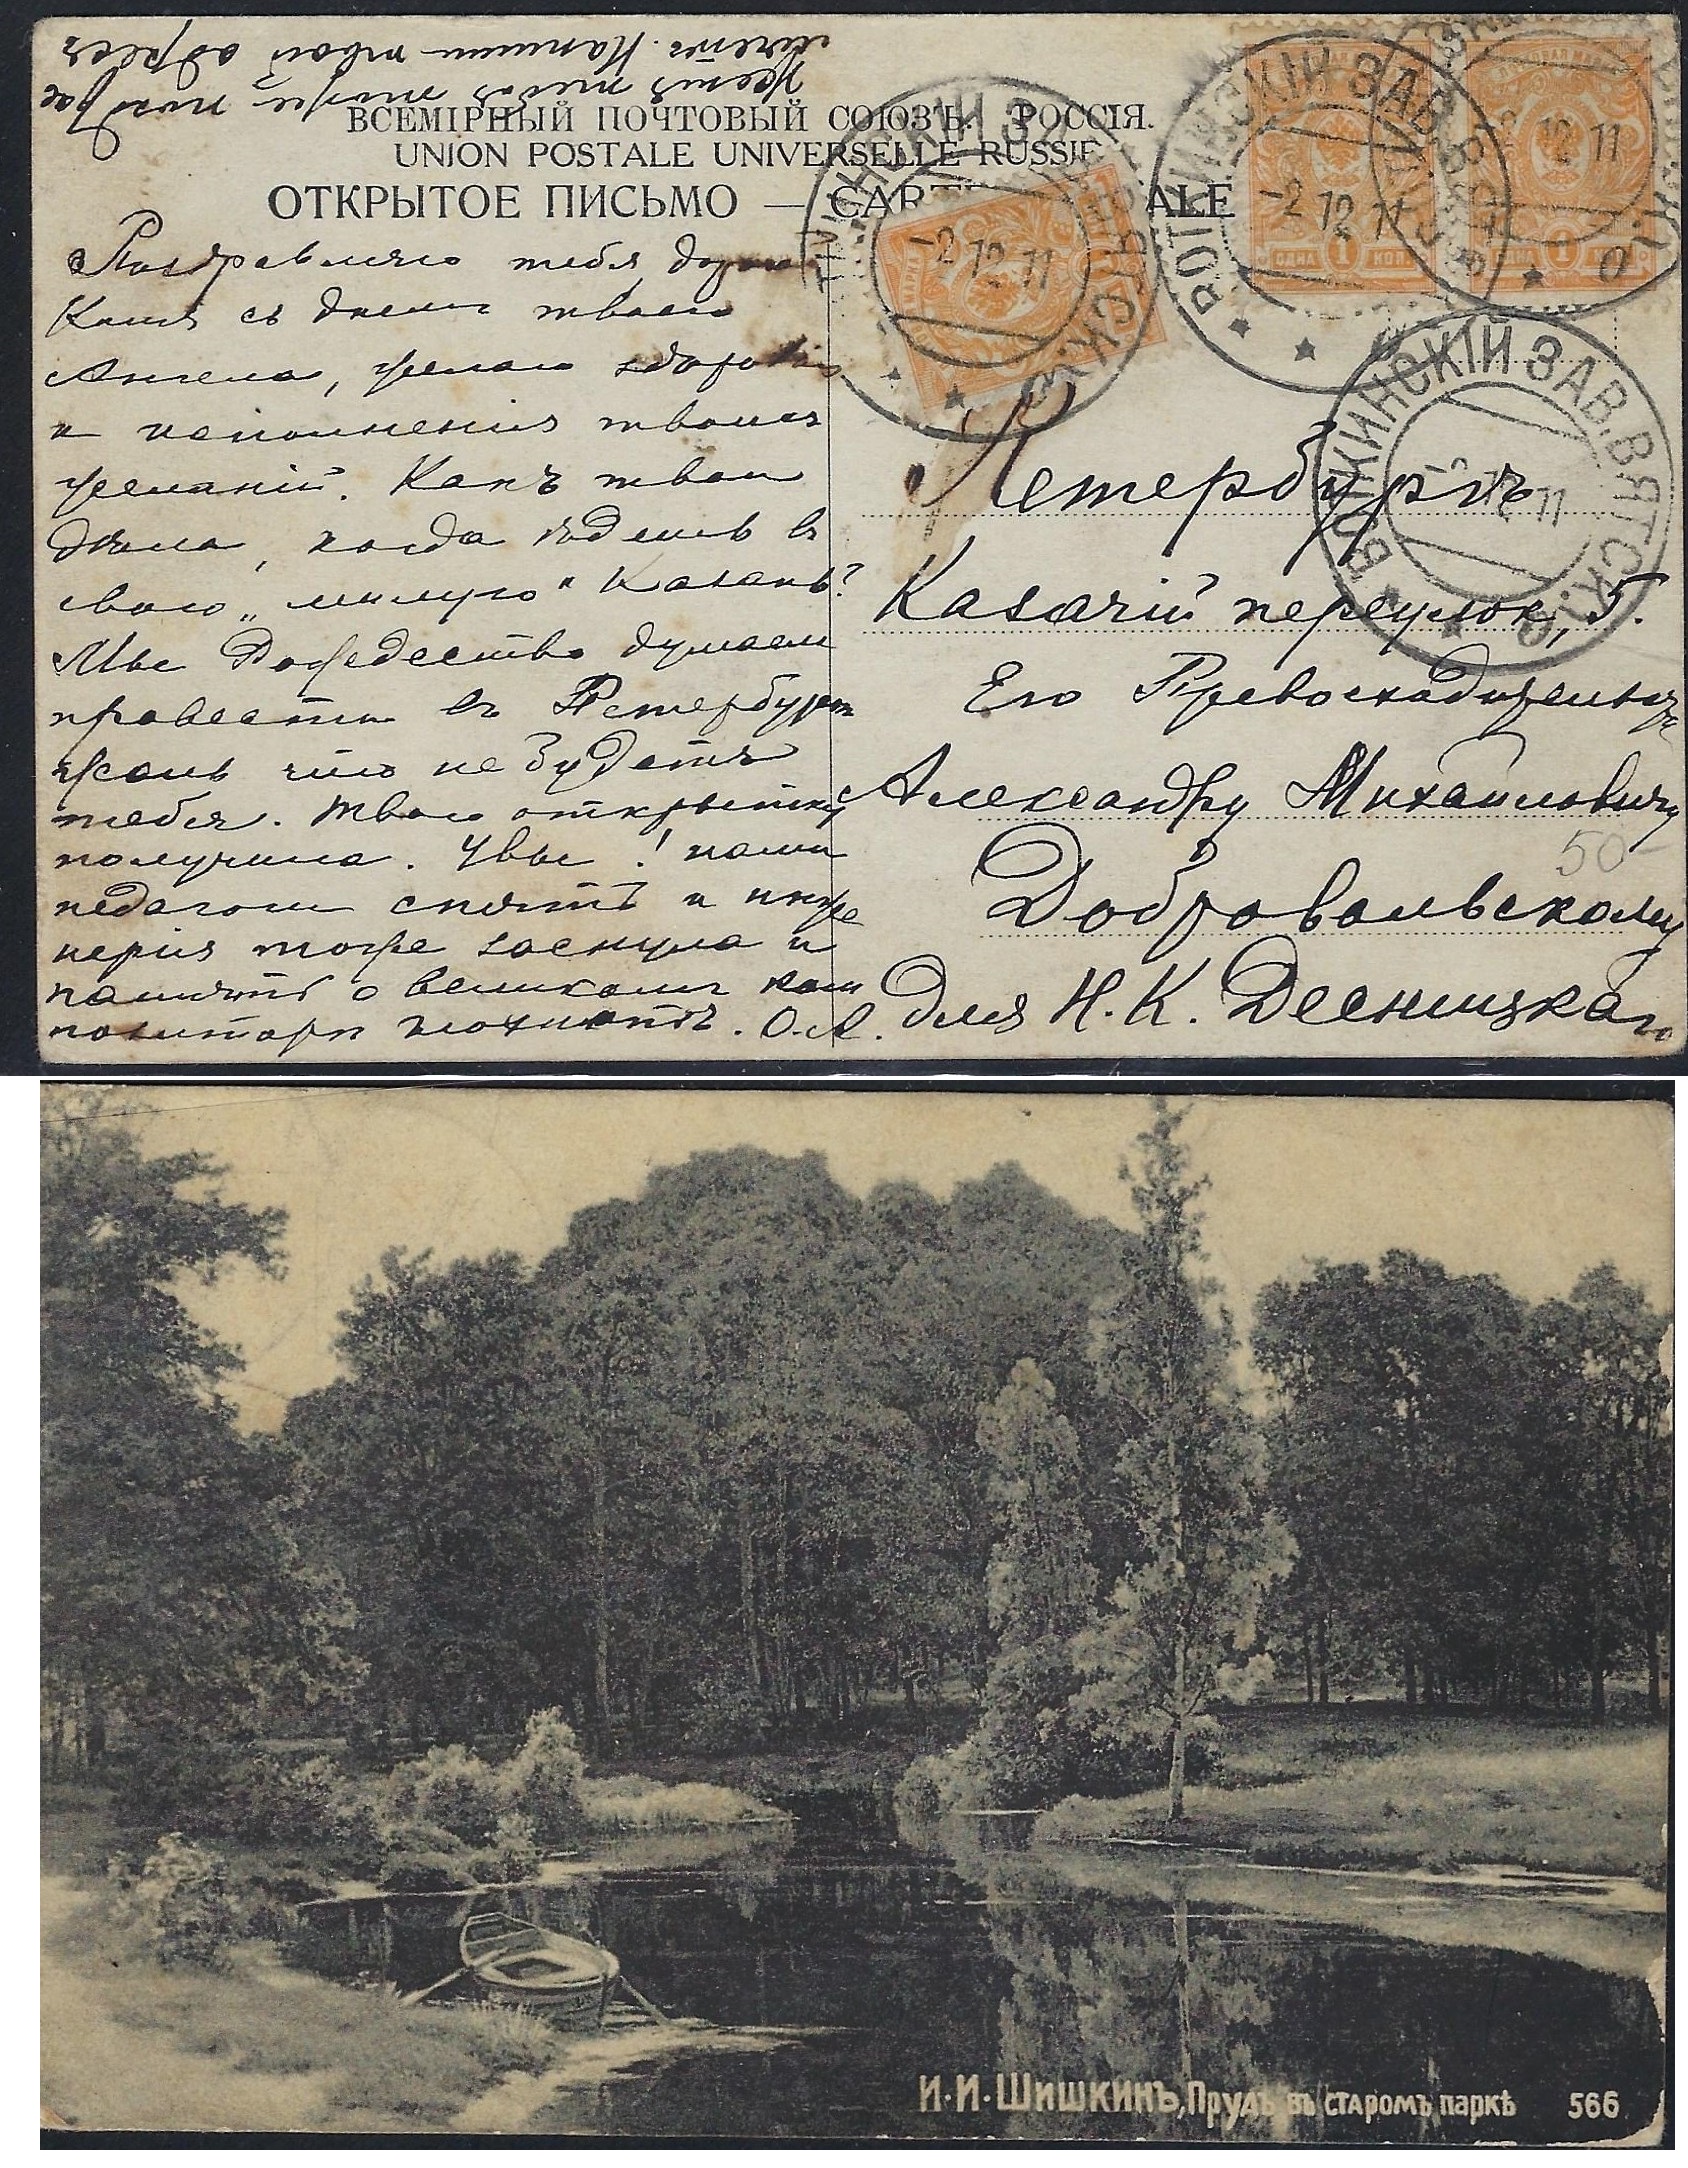 ВСЕМІРНЫЙ ПОЧТОВЫЙ СОЮЗЪ. РОССІЯ.
UNION POSTALE UNIVERSELLE RUSSIE
ОТКРЫТОЕ ПИСЬМО — CARTE POSTALE
Поздравляю тебя, дорогой
Коля съ днемъ твоего
Ангела, желаю здоровья
и исполненія твоихъ
желаній. Какъ твои
дѣла, когда ѣдешь въ
свою „милую" Казань?
Мы Рождество думаемъ
провести въ Петербургѣ
жаль что не будетъ
тебя. Твою открытку
получила. Увы! наши
педагоги спятъ и инже
нерія тоже заснула и
память о великомъ ком
позиторѣ глохнетъ. О.А.
тебѣ тоже пока Вас
Напиши твой адресъ
Петербургъ
Казачій переулок, 5.
Его Превосходительству
Александру Михайловичу
Добровольскому
для Н. К. Десницкаго
50-
ВОТКИНСКІЙ ЗАВ. ВЯТСК.
-2 12 11
ВОТКИНСКІЙ ЗАВ. ВЯТСК.
-2 12 11
-2 12 11
ВОТКИНСКІЙ ЗАВ. ВЯТСК.
-2 12 11
ОДНА 1 КОП.
ОДНА 1 КОП.
И·И·Шишкинъ, Прудъ въ старомъ паркѣ 566